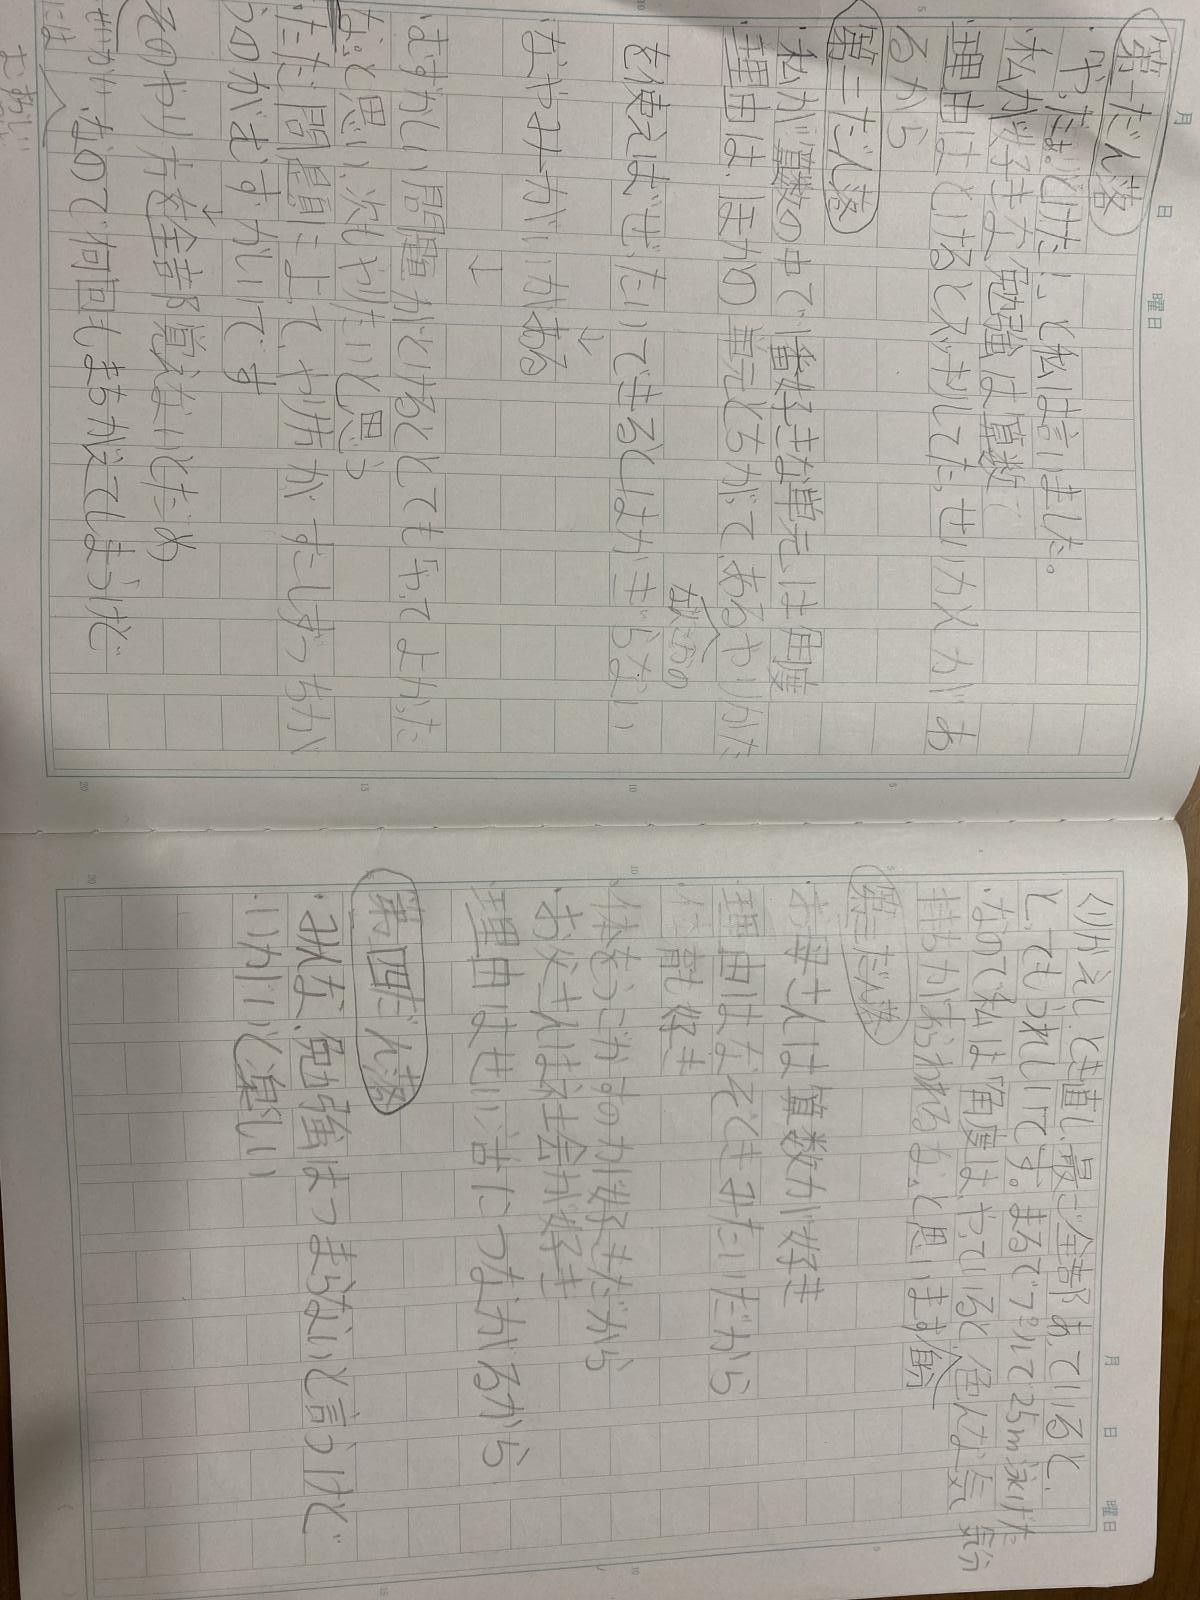 月 日 曜日
第一だん落
・「やった。とけた！」と私は言いました。
・私が好きな勉強は算数で
理由はとけるとスッキリしてたっせいカンがあ
るから
第二だん落
・私が算数の中で一番好きな単元は角度
理由は、ほかの単元とちがって、あるやりかた
を使えばぜったいできるとはかぎらない
なやみがいがある
↓
・むずかしい問題がとけるととてもやってよかった
な。と思い、次もやりたいと思う
ただ問題によってやり方がたしざっちが
うのがむずかしいです
そのやり方を全部覚えないとだめ
なので何回もまちがえてしまうけど
くりかえしとき直し、最ご全部あっていると、
とってもうれしいです。まるでプールで25m泳げた
・なので私は角度はやっていると色んな気
持ちがあらわれるな。と思います
気分
第三だん落
・お母さんは算数が好き
理由はなぞときみたいだから
・体育が好き
体をうごかすのが好きだから
・お父さんは社会が好き
理由はせい活につながるから
第四だん落
・みんな、勉強はつまらないと言うけど
・いがいと楽しい